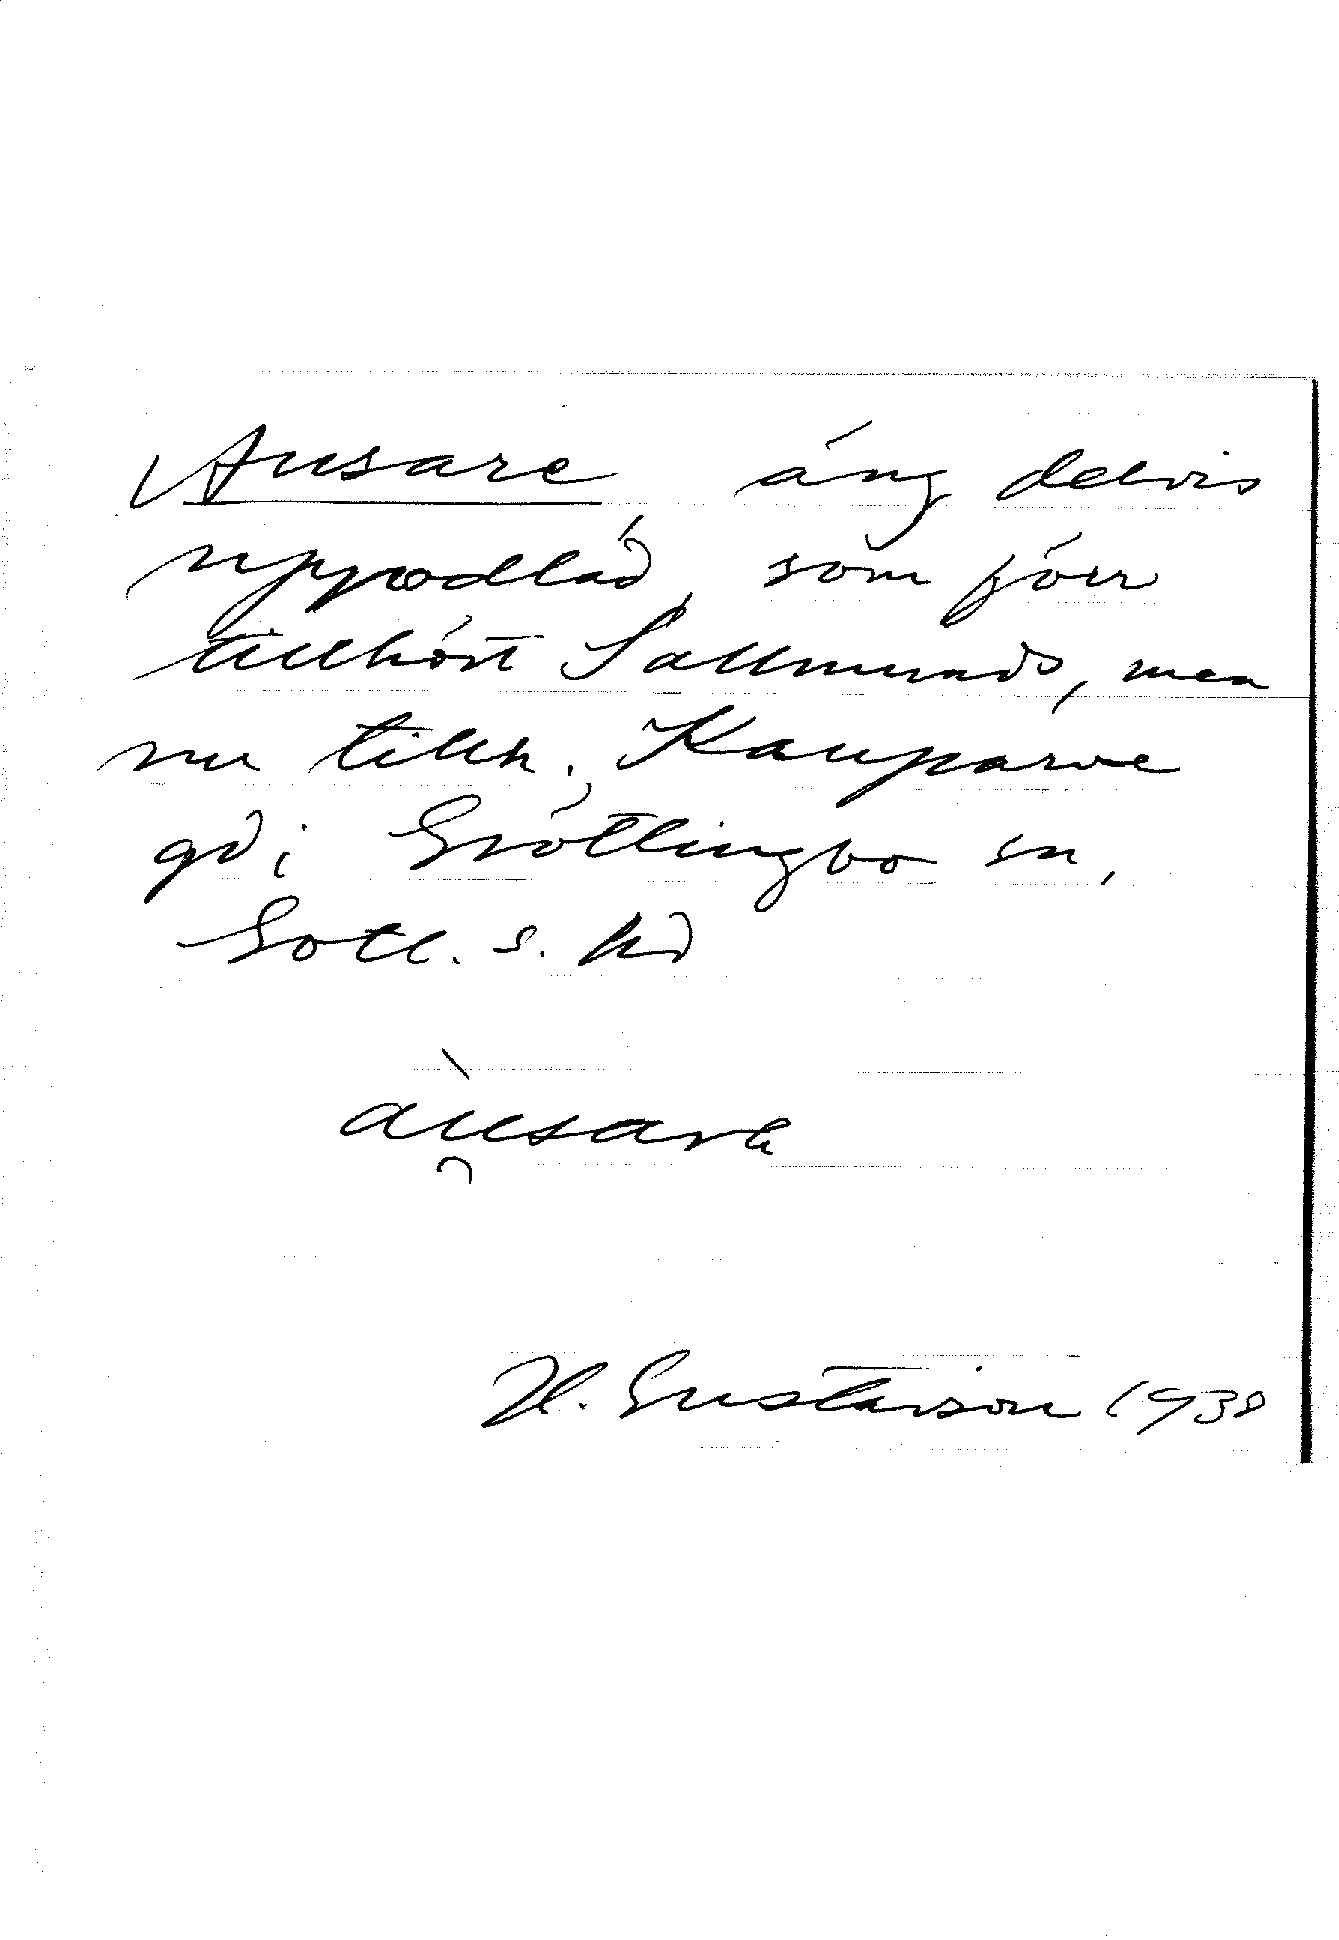 Ausare, äng delvis
uppodlad, som förr
tillhört Sallmunds, men
nu tillh. Kauparve
gd i Grötlingbo sn,
Gotl. s. hd
àu̯sarä
H. Gustavson 1938